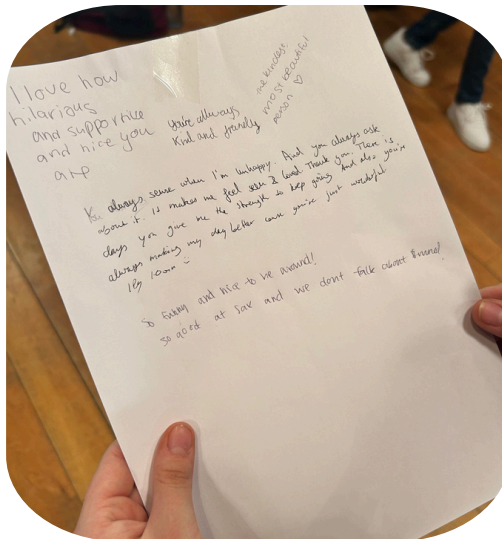 I love how
hilarious
and supportive
and nice you
are
you're always
kind and friendly
the kindest,
most beautiful
person ♡
You always sense when I'm unhappy. And you always ask
about it. It makes me feel seen & loved Thank you. There is
days you give me the strength to keep going. And also you're
always making my day better cause you're just wonderful
:)
so funny and nice to be around!
so good at sax and we dont talk about